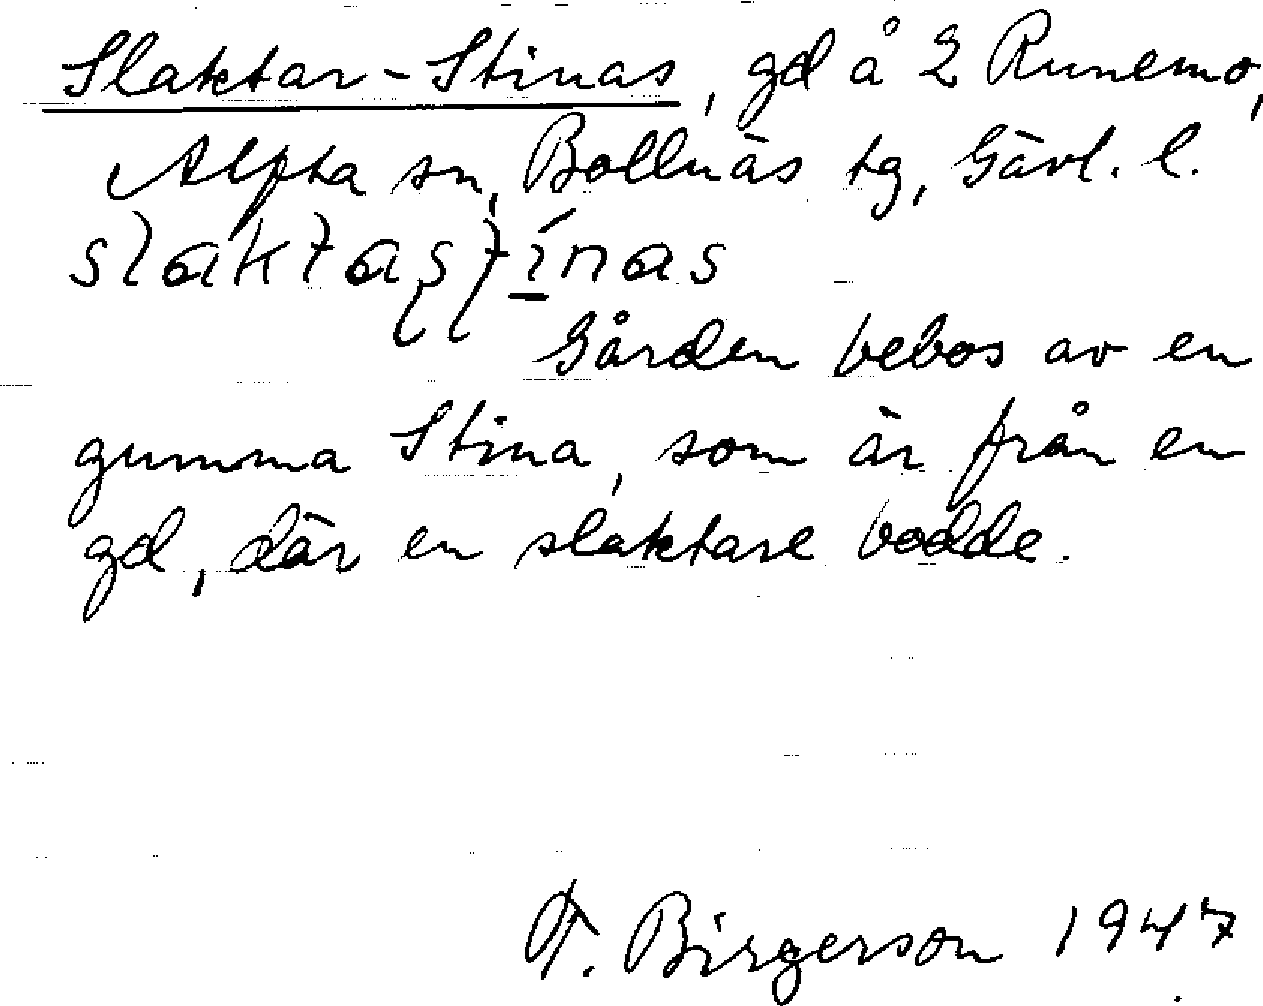 Slaktar-Stinas, gd å 2 Runemo,
Alfta sn, Bollnäs tg, Gävl. l.
slaktaʂʈí̱nas
Gården bebos av en
gumma Stina, som är från en
gd, där en slaktare bodde.
T. Birgerson 1947